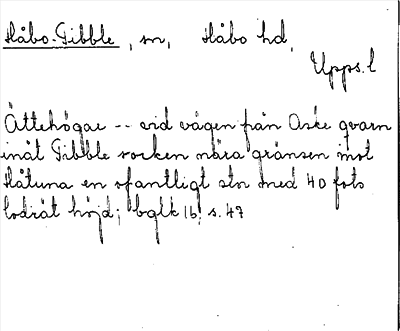 Håbo-Tibble, sn, Håbo hd,
Upps. l
Ättehögar -- vid vägen från Aske qvarn
inåt Tibble socken nära gränsen mot
Håtuna en ofantligt stor med 40 fots
lodrät höjd; bglk 16, s. 47